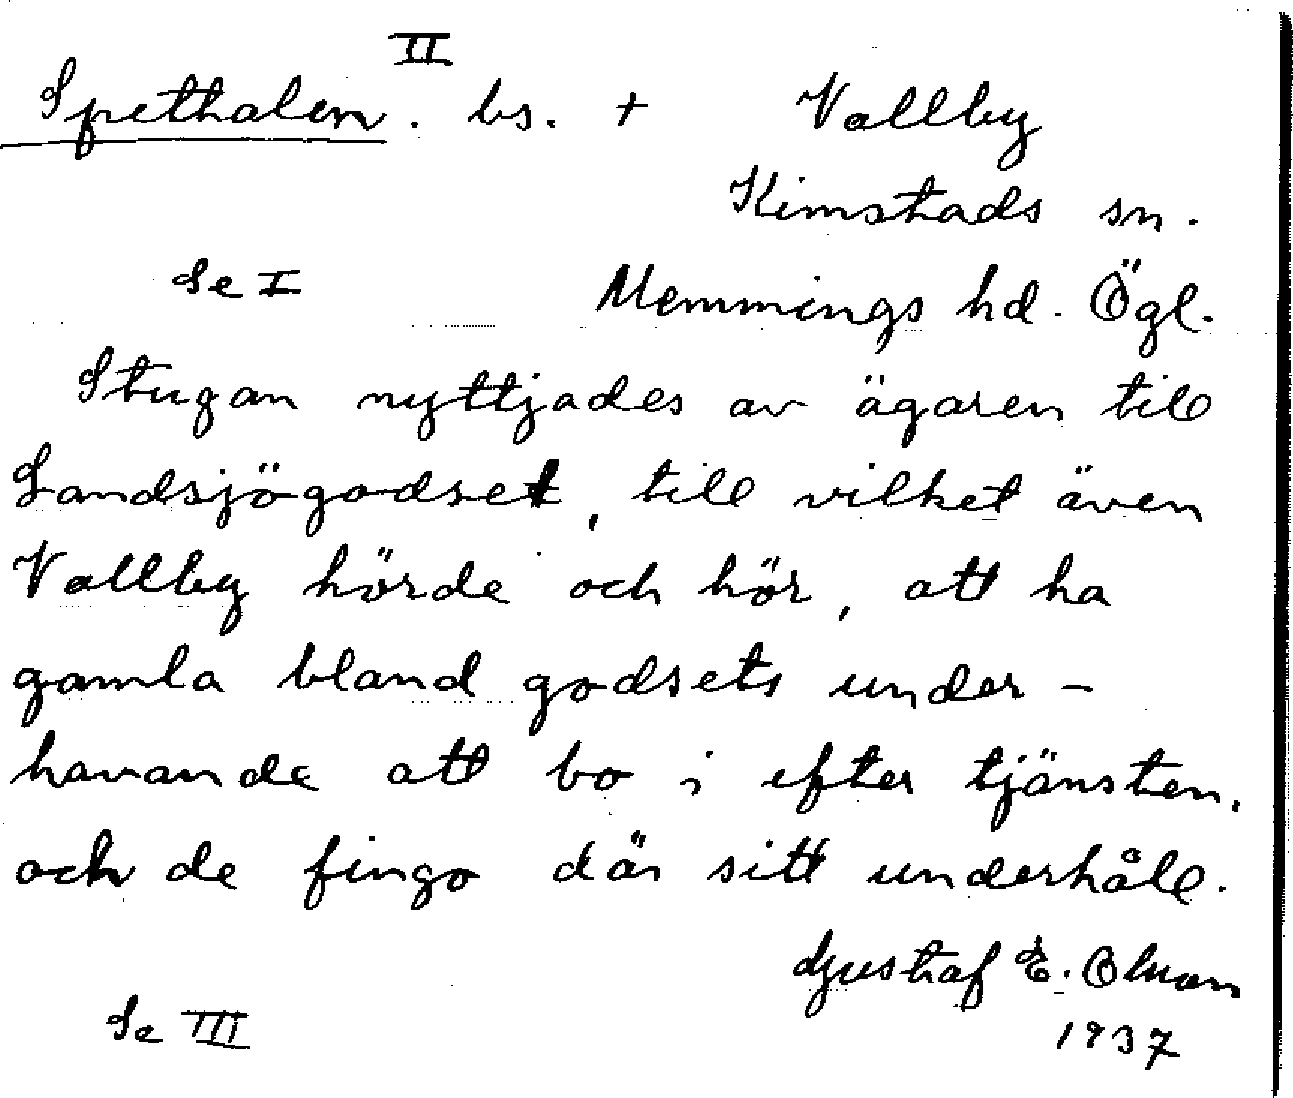 II
Spethalen. bs. + Vallby
Kimstads sn.
Se I Memmings hd. Ögl.
Stugan nyttjades av ägaren till
Landsjögodset, till vilket även
Vallby hörde och hör, att ha
gamla bland godsets under-
havande att bo i efter tjänsten,
och de fingo där sitt underhåll.
Gustaf E.
Se III 1937